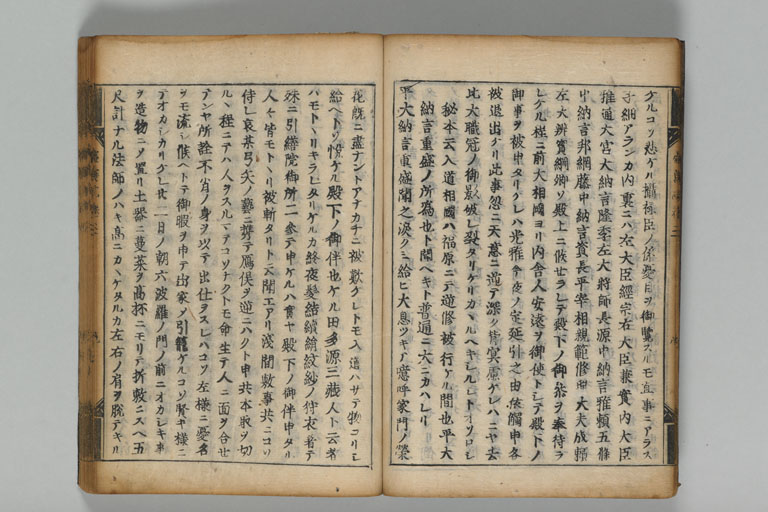 ケルコソ悲ケル攝禄臣ノ係憂目ヲ御覽スルモ直事ニアラス
子細アランカ内裏ニハ左大臣經宗右大臣兼實内大臣
雅通大宮大納言隆季左大將師長源中納言雅頼五條
中納言邦綱藤中納言資長平宰相親範修理大夫成頼
左大辨實綱御ソ殿上ニ候セラレテ殿下ノ御參ヲ奉待ラ
レケル程ニ前大相國ヨリ内舎人安遠ヲ御使トシテ殿下ノ
御事ヲ被申タリケレハ光雅今夜ノ定延引之由依觸申各
被退出ケリ此事怨ニ天意ニ達テ深ク背冥慮ケレハニヤ去
比大職冠ノ御影破レ裂タリケリカヽルヘキシルシトオソロシ
秘本云入道相國ハ福原ニテ逆修被行ケル間也平大
納言重盛ノ所爲也ト聞ヘキト普通ニ大ニカハレリ
平大納言重盛聞之涙クミ給ヒ大息ツキテ噫呼家門ノ榮
花既ニ盡ナントアナカチニ被歎ケレトモ入道ハサテ物コリシ
給ヘトソ悦ケル殿下ノ御伴也ケル田多源三藏人ト云者
ハモトヽリキラレタリケルカ終夜髮結續絹紋紗ノ狩衣着テ
殊ニ引繕院御所ニ參テ申ケルハ實ヤ殿下ノ御伴申タリ
人々皆モトヽリ被斬タリト云聞エアリ淺間敷事共ニコソ
侍レ哀某弓矢ノ藝ニ携テ
ルヽ程ニテハ人ヲスルマテコソナクトモ命生テ人ニ面ヲ合セ
アンヤ所詮不肖ノ身ヲ以テ出仕ヲスレハコソ左樣ニ憂名
ヲモ流シ候ヘトテ御暇ヲ申テ出家ノ引籠ケルコソ賢キ樣ニ
テオカシカリケレ廿一日ノ朝六波羅ノ門ノ前ニオカシキ事
ヲ造物ニメ置リ土器ニ蔓菜ヲ高杯ニモリテ折敷ニスヘ五
尺計ナル法師ノハキ高ニカヽケタルカ左右ノ肩ヲ脱テキリ